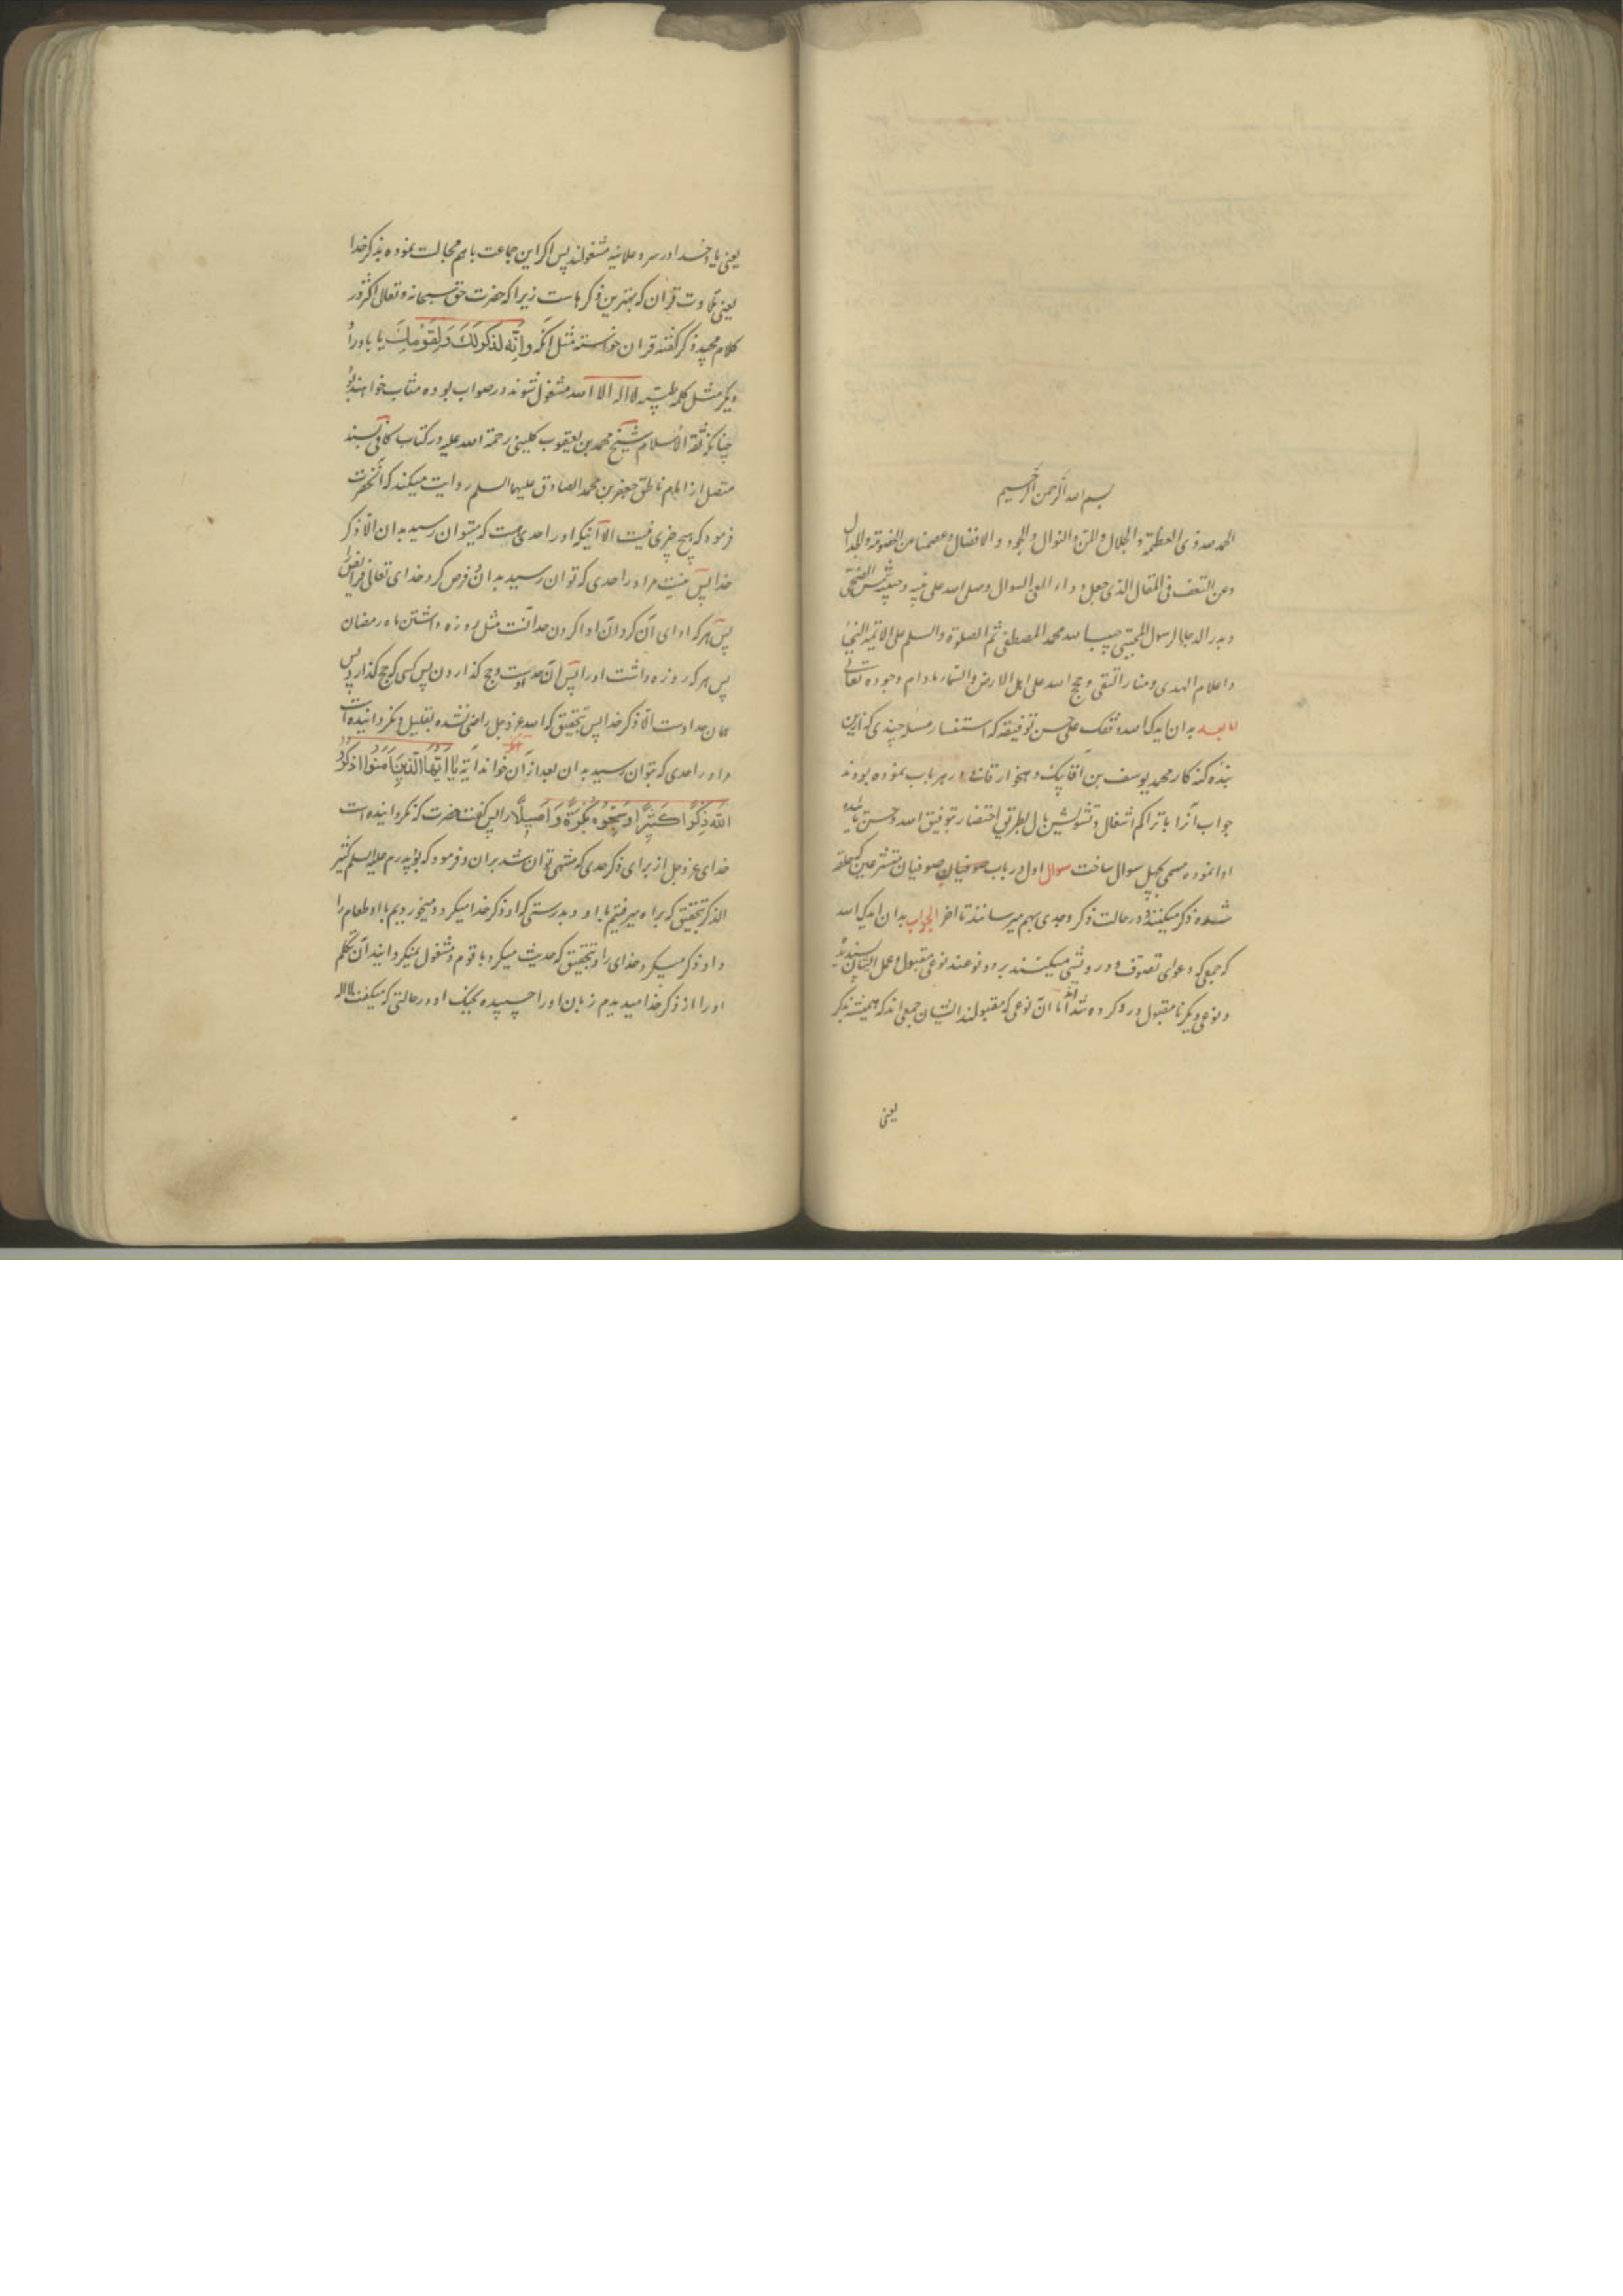 بسم الله الرحمن الرحیم
الحمد لله ذی العظمة و الجلال و المن و النوال و الجود و الافضال و عصمنا من الغوایة و الجدال
و عن التعسف فی المقال الذی جعل دواء العی السوال و صلی الله علی نبیه و صفیه شمس الضحی
و بدر الدجا الرسول المجتبی حبیب الله محمد المصطفی ثم الصلوة و السلم علی الائمة النجبا
و اعلام الهدی و منار التقی و حجج الله علی اهل الارض و السماء مادام وجوده تعالی
اما بعد بدان ایدک الله و وفقک علی حسن توفیقه که استفسار مسئله چندی که ازین
بنده کنه کار محمد یوسف بن آقا بیک دهخوارقانی در هر باب نموده بودند
جواب آنرا با تراکم اشغال و تشویش بال بطریق اختصار بتوفیق الله و حسن تائیده
ادا نموده مسمی بچهل سوال ساخت سوال اول در باب صوفیان متشرعین که حلقه
شده ذکر میکنند و در حالت ذکر وجدی بهم میرسانند تا اخر الجواب بدان ایدک الله
که جمعی که دعوای تصوف و درویشی میکنند بر دو نوعند نوعی مقبول و عمل ایشان پسندیده
و نوعی دیگر نا مقبول و رد کرده شده اند اما آن نوعی که مقبولند ایشان جمعی اند که همیشه بذکر
یعنی
یعنی یاد خدا در سر و علانیه مشغولند پس اکر این جماعت با هم مجالست نموده بذکر خدا
یعنی تلاوت قرآن که بهترین ذکرهاست زیرا که حضرت حق سبحانه و تعالی اکثر در
کلام مجید ذکر کفته قران خواسته مثل آنکه وَاِنَّه لَذِکرٌ لَکَ وَلِقَوْمِكَ یا باوراد
دیکر مثل کلمه طیبه لا اله الا الله مشغول شوند در صواب بوده مثاب خواهند بود
چنانکه ثقة الاسلام شیخ محمد بن یعقوب کلینی رحمة الله علیه در کتاب کافی بسند
متصل از امام ناطق جعفر بن محمد الصادق علیهما السلم روایت میکند که آنحضرت
فرمود که هیچ چیزی نیست الا آنکه او را حدی هست که میتوان رسید بدان الّا ذکر
خدا پس نیست مر او را حدی که توان رسید بدان فرض کرد خدای تعالی فرایض را
پس هر که ادای آن کرد آن ادا کردن حد آنست مثل روزه داشتن ماه رمضان
پس هر که روزه داشت او را پس آن حد اوست و حج کذاردن پس کسی که حج کذارد پس
همان حد اوست الّا ذکر خدا پس بتحقیق که الله عز و جل راضی نشده بقلیل و نکردانیده است
او را حدی که بتوان رسید بدان بعد از آن خواند آیه یٰا اَیُّهَا الَّذینَ آمَنُوا اذکُرُوا
اللهَ ذِکرًا کَثیرًا وَسَبِّحُوهُ بُکرَةً وَاَصیلًا را پس کفت حضرت که نکردانیده است
خدای عز و جل از برای ذکر حدی که منتهی توان شد بران و فرمود که بود پدرم علیه السلم کثیر
الذکر بتحقیق که براه میرفتیم با او و بدرستی که او ذکر خدا میکرد و میخوردیم با او طعام را
و او ذکر میکرد خدای را و بتحقیق که حدیث میکرد با قوم و مشغول نمیکردانید آن تکلم
او را از ذکر خدا میدیدم زبان او را چسپیده بحنک او در حالتی که میکفت لا اله